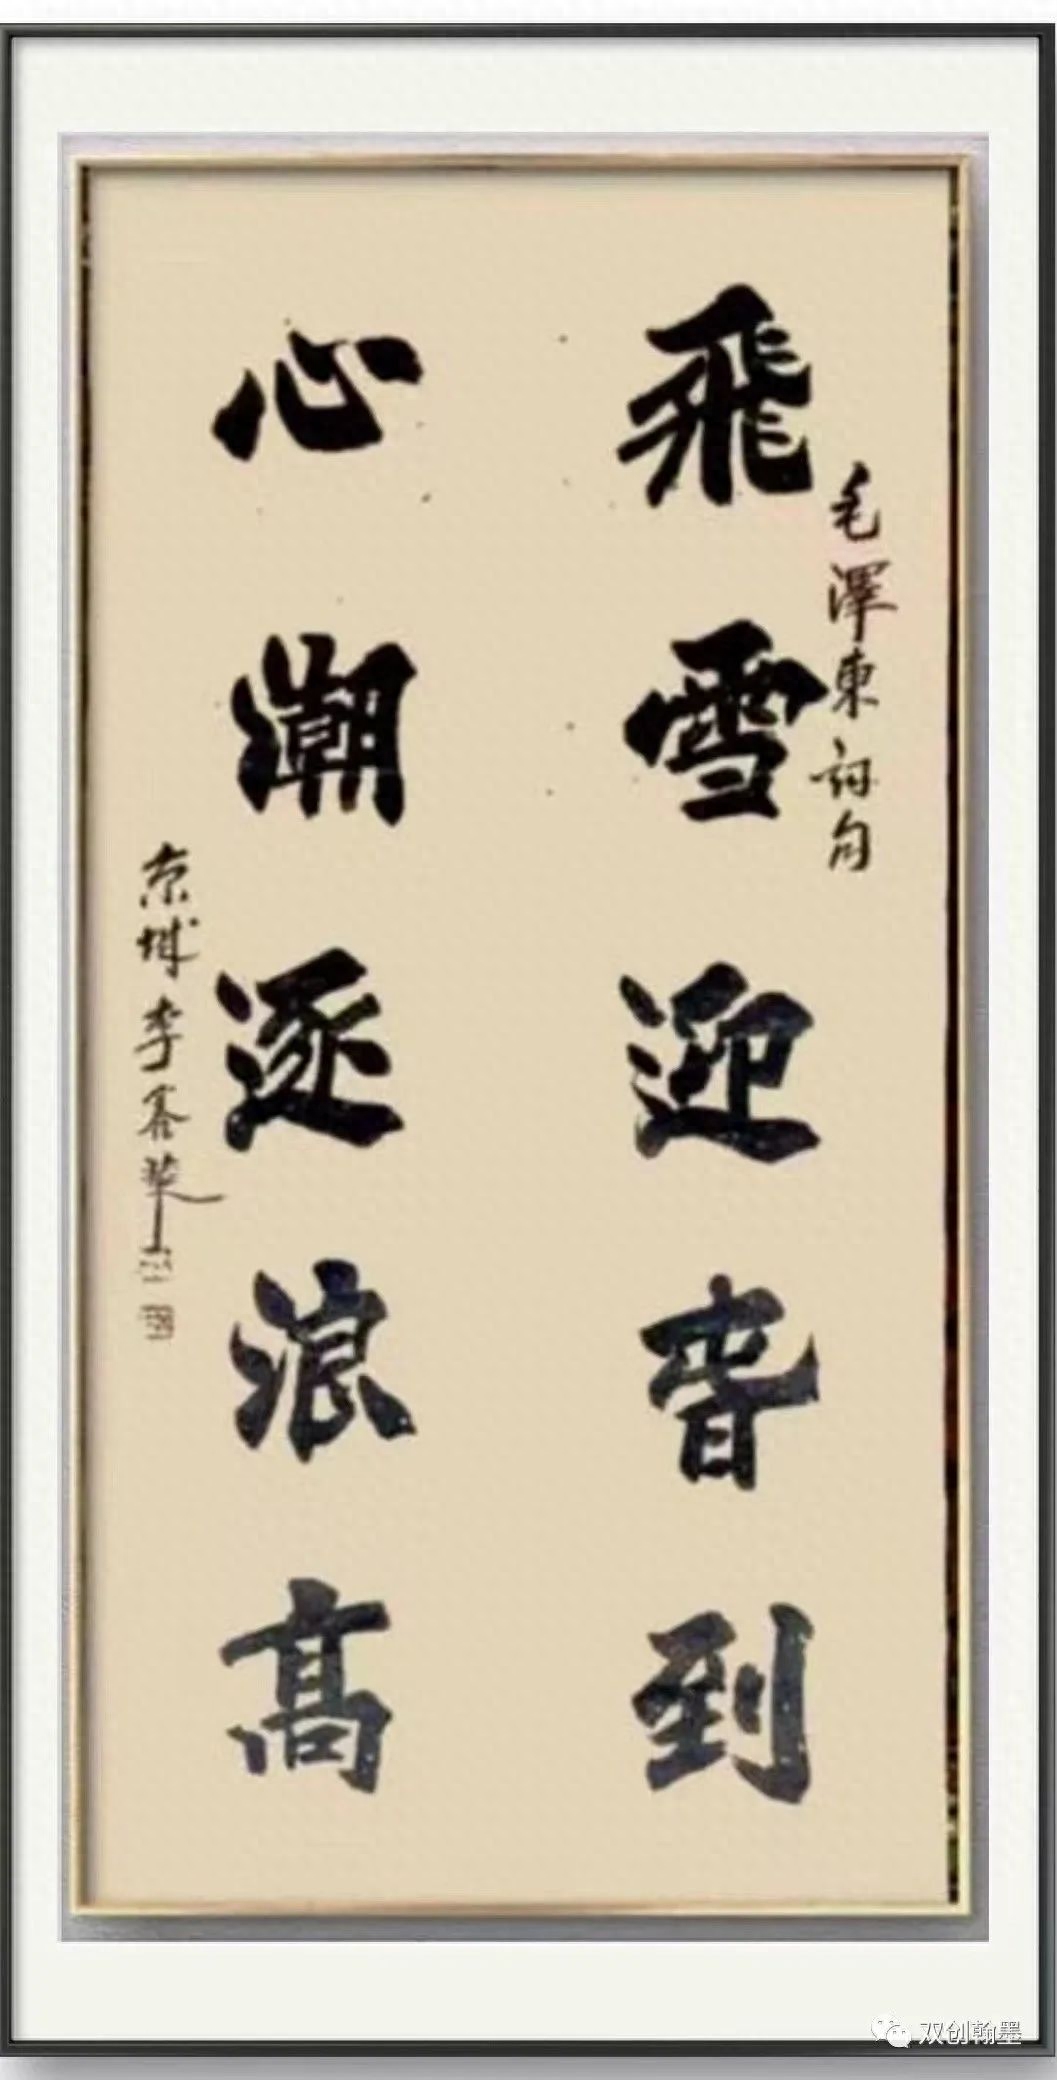 飛雪迎音到
毛澤東詞句
心潮逐浪高
京城李
双创翰墨